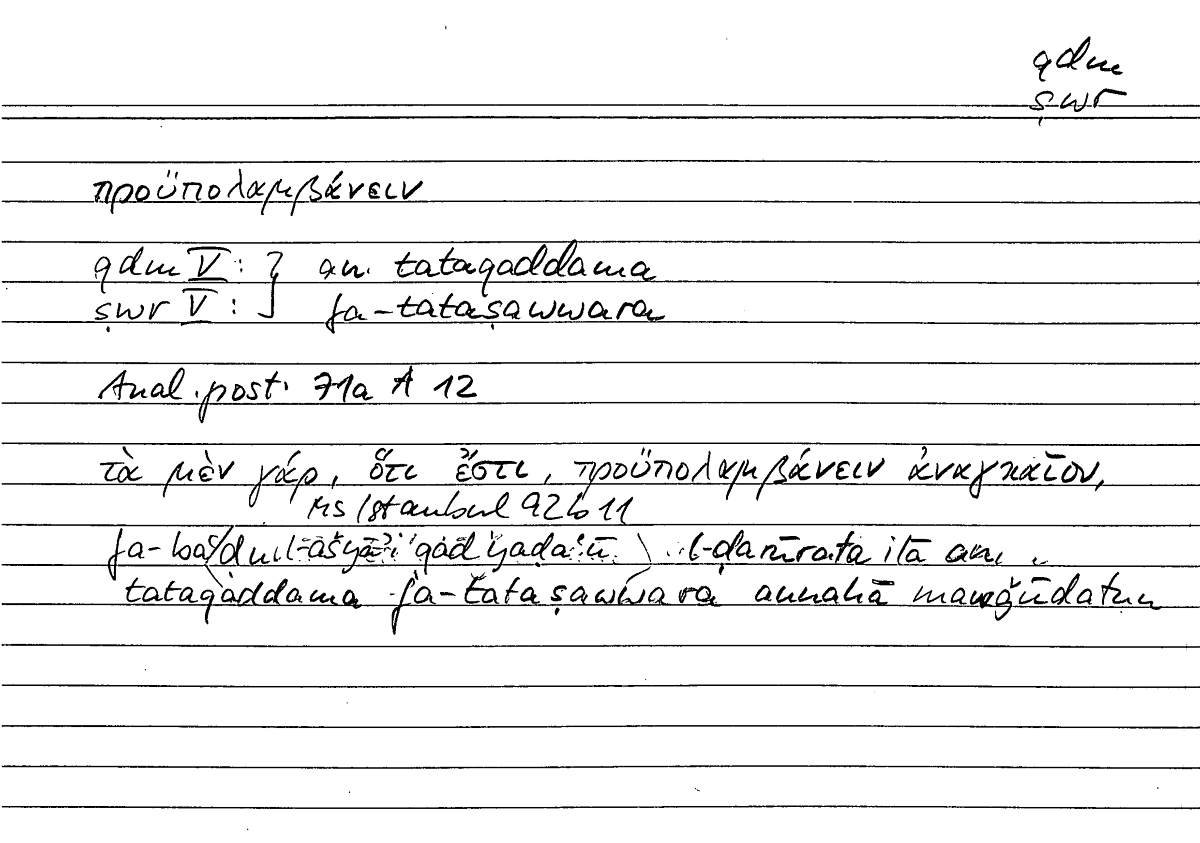 qdm
ṣwr
προϋπολαμβάνειν
qdm V : } an tataqaddama
ṣwr V : } fa-tataṣawwara
Anal. post. 71a A 12
τὰ μὲν γάρ, ὅτι ἔστι, προϋπολαμβάνειν ἀναγκαῖον,
MS Istanbul 92b11
fa-baʿḍu l-ašyāʾi qad l-ḍarūrata ilā an
tataqaddama fa-tataṣawwara annahā mawǧūdatun